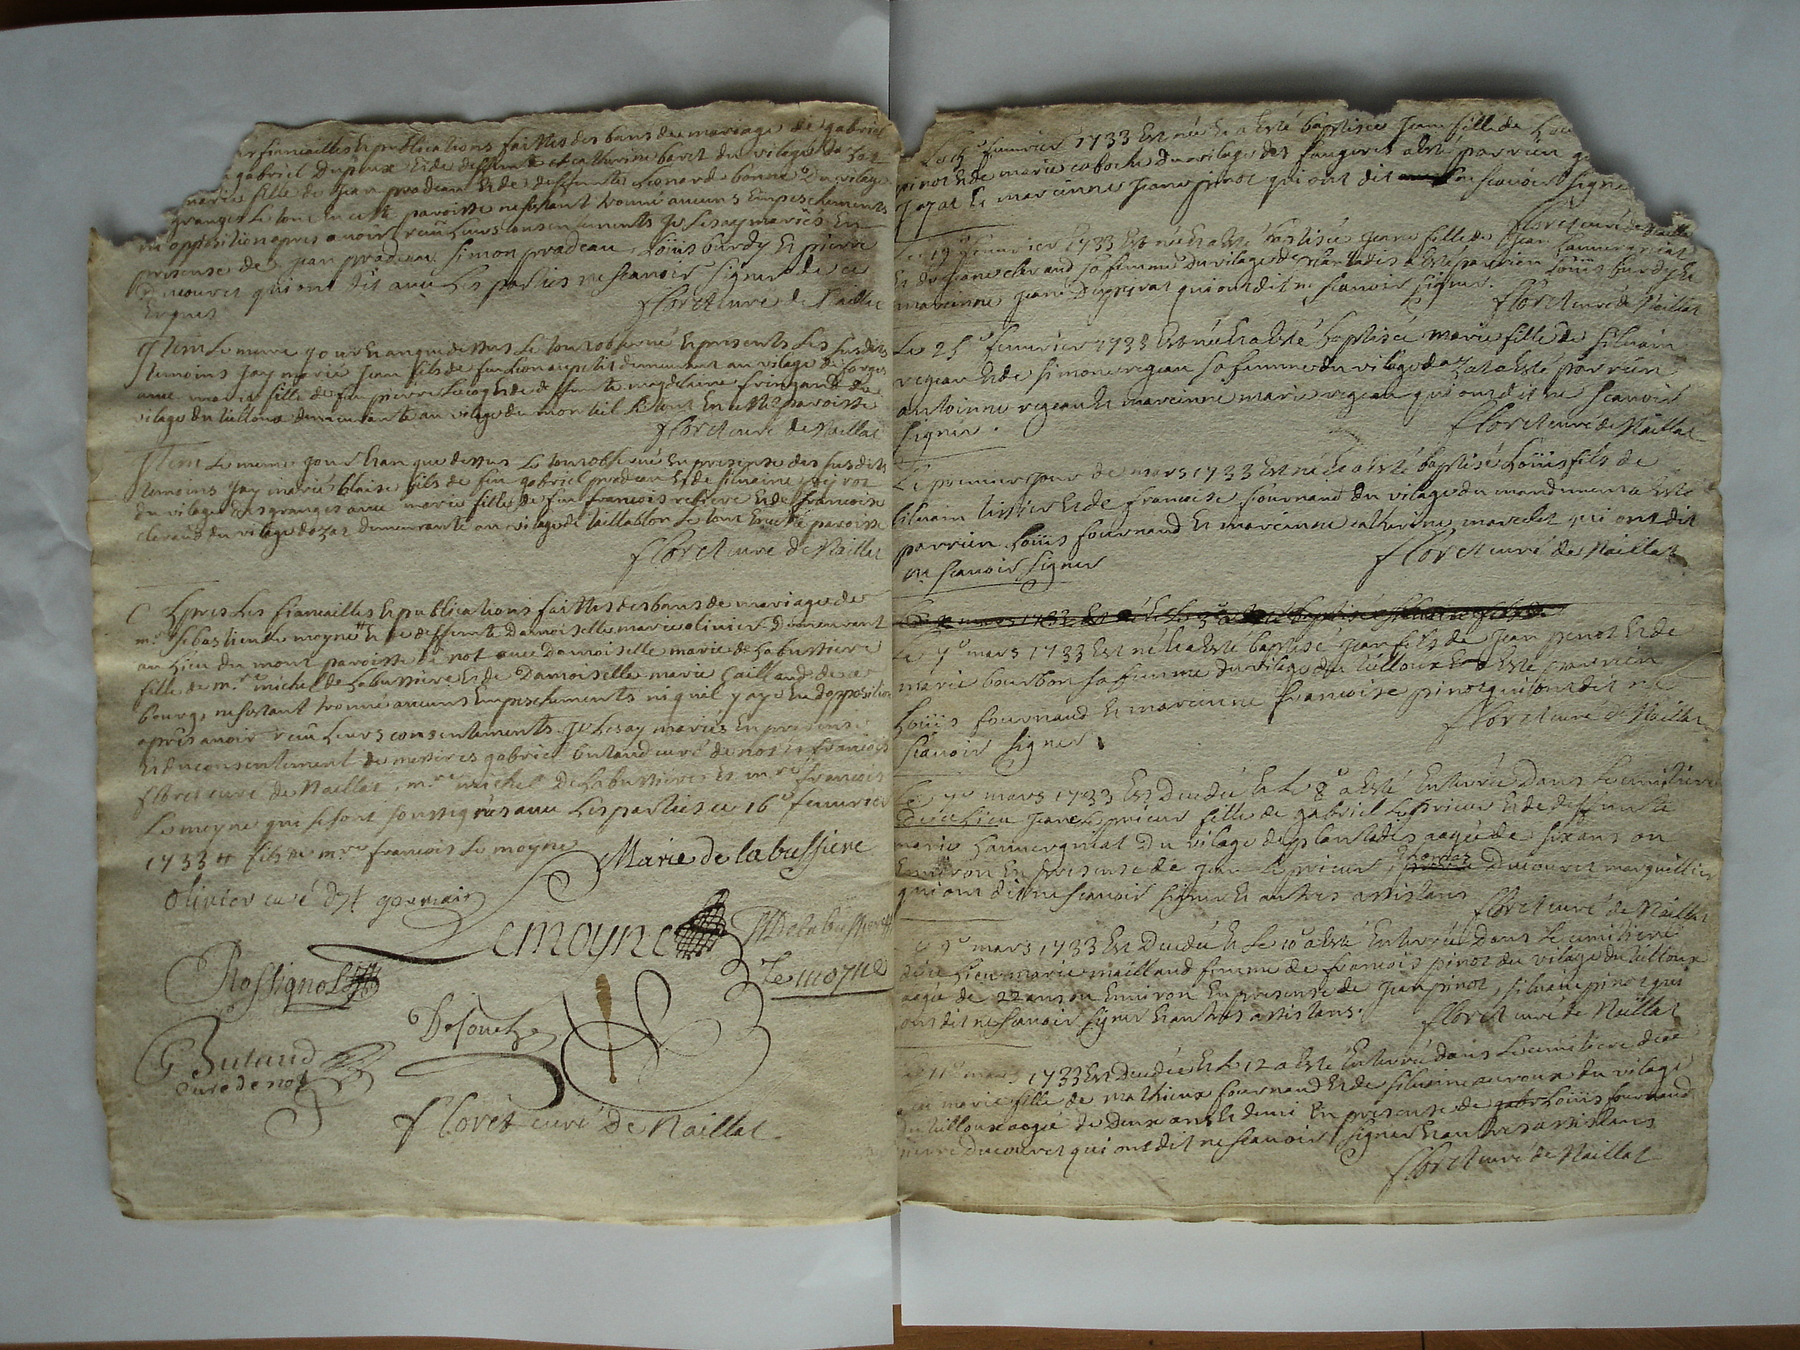 fiancailles et publications faittes des bans de mariage de gabriel
gabriel Dupeux et de deffunte catherine baret du vilage dazat
marie fille de Jean pradeau et de deffunte leonarde bonne Du vilage
granges le tout en cette paroisse ne sestant trouvé aucuns Empeschements
ny opposition apres avoir reçu leurs consentements Je les ay mariés En
presense de Jean pradeau, simon pradeau, Loüis burdy et pierre
Ducouret qui ont dit avec les parties ne scavoir signer de ce
Enquis
floret curé de Naillat
Item le meme jour et an que dessus le tout observé En presents les susdits
temoins Jay marié Jean fils de feu
avec marie fille de feu pierre et de deffunte magdelaine
vilage du tilloux demeurante au vilage du monteil le tout En cette paroisse
floret curé de Naillat
Item le meme jour et an que dessus le tout observé En presense des susdits
temoins Jay marié blaise fils de feu gabriel pradeau et de silvaine
du vilage des granges avec marie fille de feu francois et de francoise
clerand du vilage dazat demeurante au vilage de taillablon le tout En cette paroisse
floret curé de Naillat
Apres les fiancailles et publications faittes des bans de mariage de
mr. sebastien le moyne et de deffunte Damoiselle marie olivier Demeurant
au lieu du mont paroisse de not avec Damoiselle marie de labussiere
fille de mr. michel de labussiere et de Damoiselle marie Caillaud de ce
bourg, ne sestant trouvé aucuns Empeschements ni quil y aye eu dopposition
après avoir reçu leurs consentements Je les ay mariés En presense
et du consentement de messires gabriel butaud curé de not et francois
floret curé de Naillat, mre michel De labussiere et mre francois
Lemoyne qui se sont soussignés avec les parties ce 16e feuvrier
1733 # fils de mre francois Le moyne
Marie de labussiere
olivier curé de st germain
Lemoyne
MDelabussiere
Rossignol
Le moyne
Desouches
G Butaud
curé de not
floret curé de Naillat
feuvrier 1733 Est née et a Esté baptisée Jeane fille de
pinot et de marie caboche du vilage des faugeres a esté parrien
Jazat et marienne Jeane pinot qui ont dit ne scavoir signer
floret curé de Naillat
Le 19e feuvrier 1733 Est née et a Esté baptisée Jeane fille de Jean Lauvergniat
et de Jeane clerand sa femme du vilage de plantadis a Esté parrien Loüis burdy et
marienne Jeane Duqueirat qui ont dit ne scavoir signer.
floret curé de Naillat
Le 25e feuvrier 1733 Est née et a Esté baptisée marie fille de silvain
regeau et de simone regeau sa femme du vilage dazat a Esté parrien
antoinne regeau et marienne marie regeau qui ont dit ne scavoir
signer.
floret curé de Naillat
Le premier jour de mars 1733 Est né et a Esté baptisé Loüis fils de
silvain tixier et de francoise fournaud du vilage du mandement a Esté
parrien Loüis fournaud et marienne catherine marcelet qui ont dit
ne scavoir signer
floret curé de Naillat
Le 7e mars 1733 Est né et a Esté baptisé Jean fils de Jean pinot et de
marie bourbon sa femme du vilage du tilloux a Esté parrien
Loüis fournaud et marienne francoise pinot qui ont dit ne
scavoir signer
floret curé de Naillat
Le 7e mars 1733 Est Decedée et le 8e a Esté Enterrée Dans le cimetiere
de ce lieu Jeane Leprieur fille de gabriel Leprieur et de deffunte
marie Lauvergniat Du vilage de plantadis aagée de six ans ou
Environ En presense de Jean Leprieur, thomas Ducouret marguillier
qui ont dit ne scavoir signer et autres assistans
floret curé de Naillat
Le 9e mars 1733 Est Decedée et le 10e a Esté Enterrée Dans le cimetiere
de ce lieu marie maillaud femme de francois pinot du vilage du tilloux
aagée de 22 ans ou Environ En presense de Jean pinot, silvain pinot qui
ont dit ne scavoir signer et autres assistans.
floret curé de Naillat
Le 11e mars 1733 Est Decedée et le 12 a Esté Enterrée dans le cimetiere de ce
lieu marie fille de mathieux fournaud et de silvaine auroux du vilage
du tilloux aagée de Deux ans et demi En presense de Loüis fournaud
pierre Ducouret qui ont dit ne scavoir signer et autres assistans
floret curé de Naillat